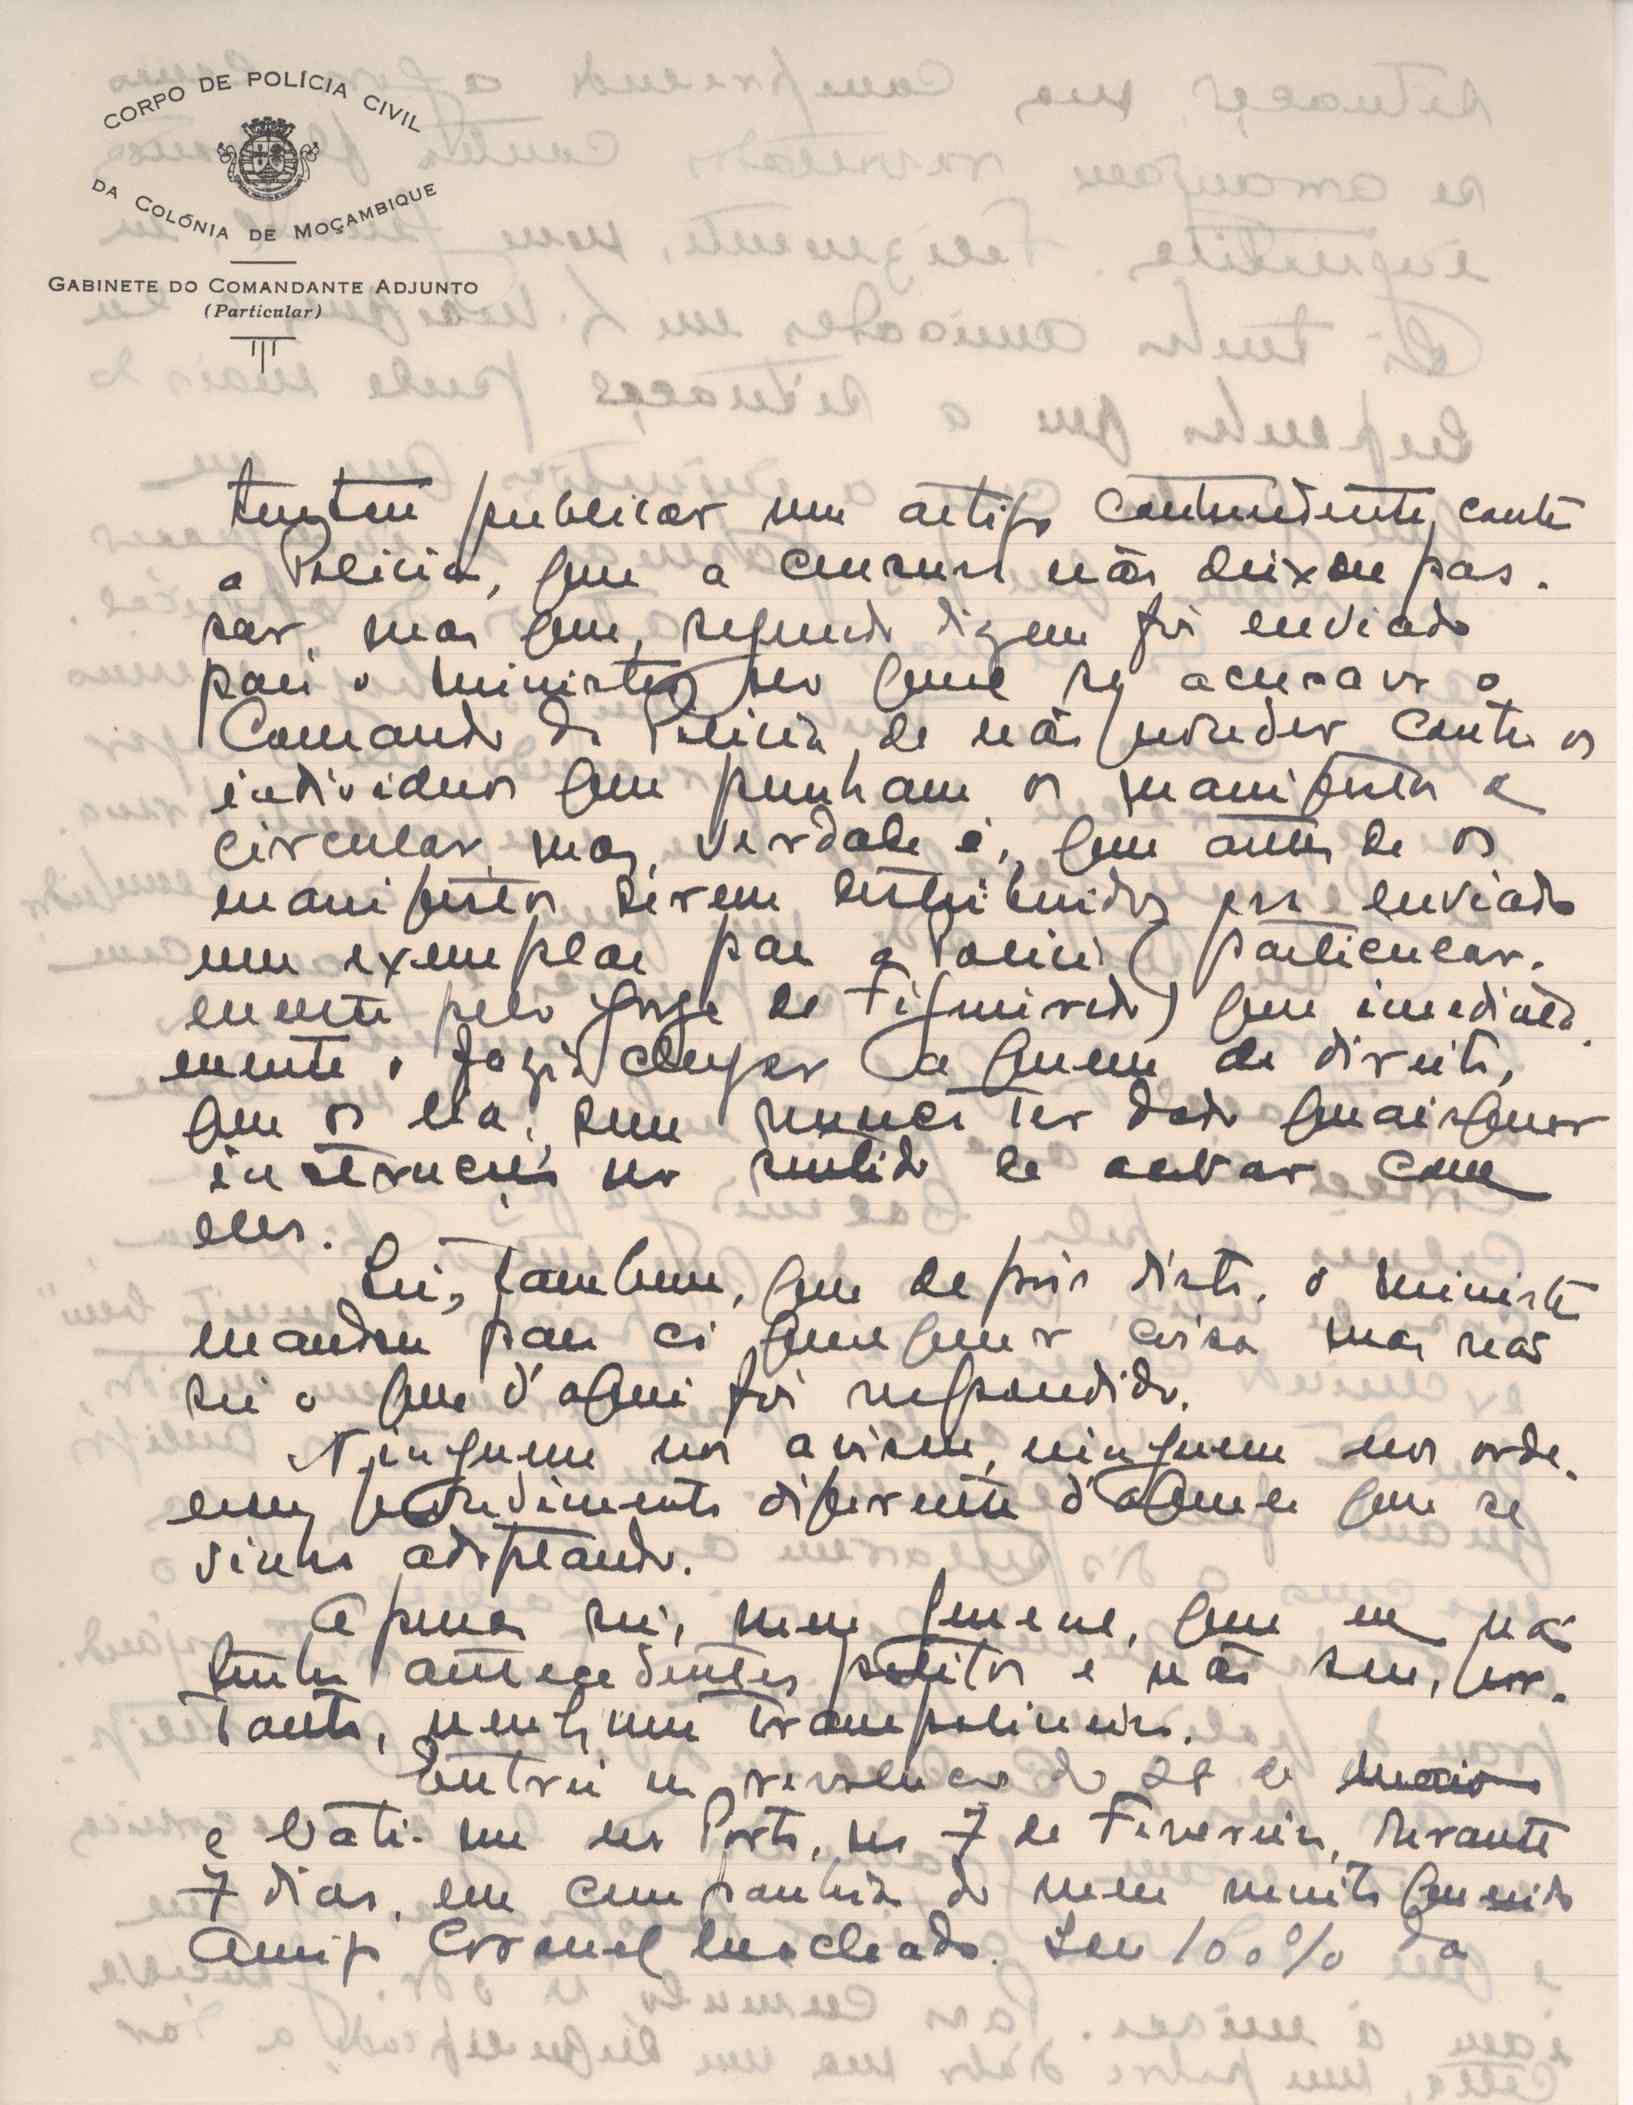 CORPO DE POLÍCIA CIVIL
DA COLÓNIA DE MOÇAMBIQUE
GABINETE DO COMANDANTE ADJUNTO
(Particular)
tentou publicar um artigo contundente, contra
a Policia, que a censura não deixou pas-
sar, mas que, segundo dizem foi enviado
para o ministro no qual se acusava o
Comando da Policia, de não proceder contra os
individuos que punham os manifestos a
circular, mas, verdade é, que antes de os
manifestos serem distribuidos era enviado
um exemplar para a Policia (particular-
mente pelo Jorge de Figueiredo) que imediata-
mente o fazia chegar a quem de direito,
que os lia, sem nunca ter dado quaisquer
instruções no sentido de acabar com
eles.
Sei, tambem, que depois disto, o ministro
mandou para cá qualquer coisa mas não
sei o que d'aqui foi respondido.
Ninguem nos avisou, ninguem nos orde-
nou procedimento diferente d'aquele que se
vinha adoptando.
Apenas sei, meu general, que eu não
tenho antecedentes politicos e não sou, por-
tanto, nenhum trampolineiro.
Entrei na revolução do 28 de Maio
e bati-me no Porto, no 7 de Fevereiro, durante
7 dias, em companhia do meu muito querido
amigo Coronel Machado. Sou 100% da